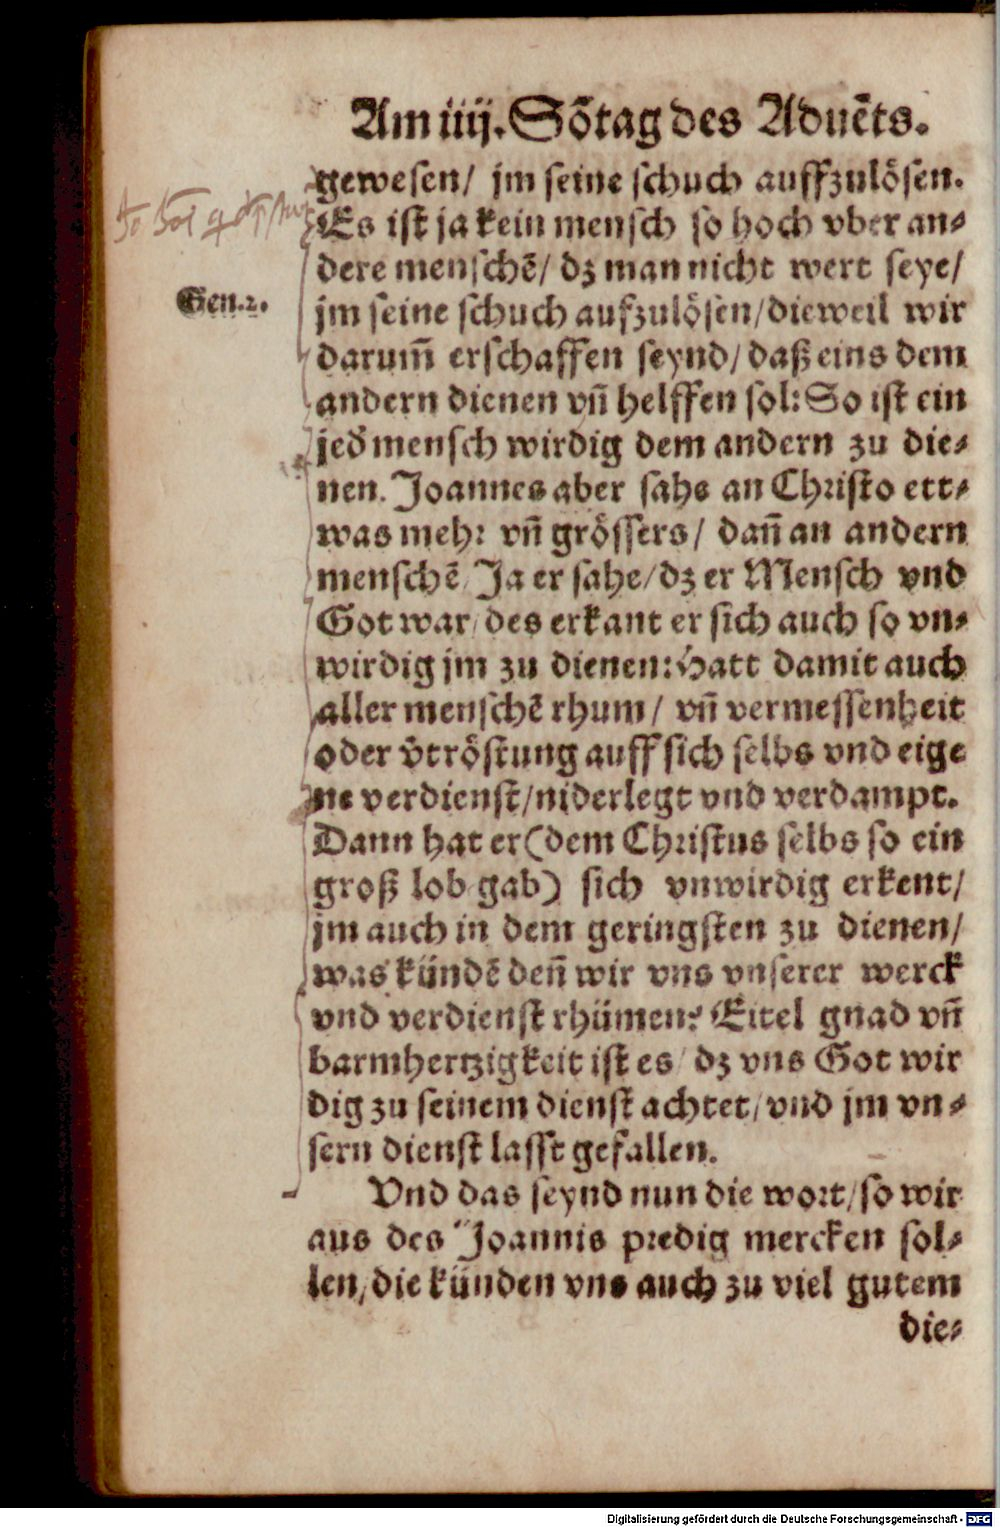 Am iiij. Sõtag des Aduẽts.
gewesen/ jm seine schuch auffzulösen.
Es ist ja kein mensch so hoch vber an⸗
dere menschẽ/ dz man nicht wert seye/
Gen.2.
jm seine schuch aufzulösen/dieweil wir
darum̃ erschaffen seynd/daß eins dem
andern dienen vñ helffen sol: So ist ein
jed̃ mensch wirdig dem andern zu die⸗
nen. Joannes aber sahe an Christo ett⸗
was mehr vñ grössers/ dañ an andern
menschẽ/ Ja er sahe/dz er Mensch vnd
Got war/des erkant er sich auch so vn⸗
wirdig jm zu dienen: Hatt damit auch
aller menschẽ rhum/ vñ vermessenheit
oder v̈tröstung auff sich selbs vnd eige
ne verdienst/niderlegt vnd verdampt.
Dann hat er (dem Christus selbs so ein
groß lob gab) sich vnwirdig erkent/
jm auch in dem geringsten zu dienen/
was kündẽ deñ wir vns vnserer werck
vnd verdienst rhümen? Eitel gnad vñ
barmhertzigkeit ist es/ dz vns Got wir
dig zu seinem dienst achtet/vnd jm vn⸗
sern dienst lasst gefallen.
Vnd das seynd nun die wort/so wir
aus des Joannis predig mercken sol⸗
len/die künden vns auch zu viel gutem
die⸗
Digitalisierung gefördert durch die Deutsche Forschungsgemeinschaft - DFG